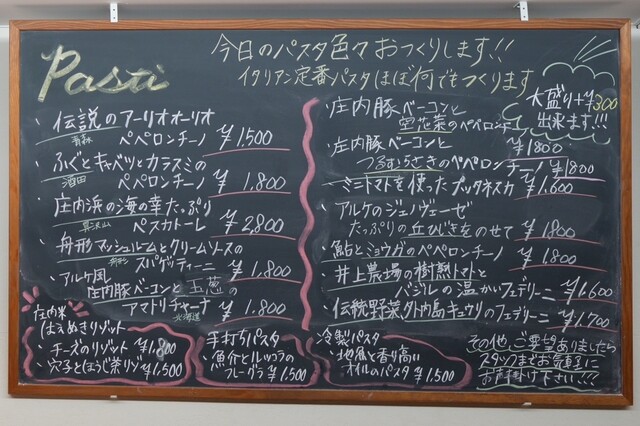 Pasta
今日のパスタ色々おつくりします!!
イタリアン定番パスタほぼ何でもつくります
大盛り+¥300
出来ます!!!
・伝説のアーリオオーリオ
青森
ペペロンチーノ ¥1,500
・ふぐとキャベツとカラスミの
酒田
ペペロンチーノ ¥1.800
・庄内浜の海の幸たっぷり
ペスカトーレ ¥2,800
・舟形マッシュルームとクリームソースの
スパゲッティーニ ¥1.800
・アルケ風
庄内豚ベーコンと玉葱の
アマトリチャーナ ¥1.800
北海道
庄内米
はえぬきリゾット
・チーズのリゾット ¥1,800
・穴子とほうじ茶リゾ ¥1,500
手打ちパスタ
・魚介とルッコラの
フレーグラ ¥1,500
冷製パスタ
・地魚と香り高い
オイルのパスタ ¥1,500
・庄内豚ベーコンと
空芯菜のペペロンチーノ
¥1800
・庄内豚ベーコンと
つるむらさきのペペロンチーノ ¥1800
・ミニトマトを使ったプッタネスカ ¥1.600
・アルケのジェノヴェーゼ
たっぷりの丘ひじきをのせて ¥1800
・鮎とミョウガのペペロンチーノ ¥1.800
・井上農場の樹熟トマトと
バジルの温かいフェデリーニ ¥1.600
・伝統野菜、外内島キュウリのフェデリーニ ¥1.700
その他、ご要望ありましたら
スタッフまでお気軽に
お声掛け下さい!!!